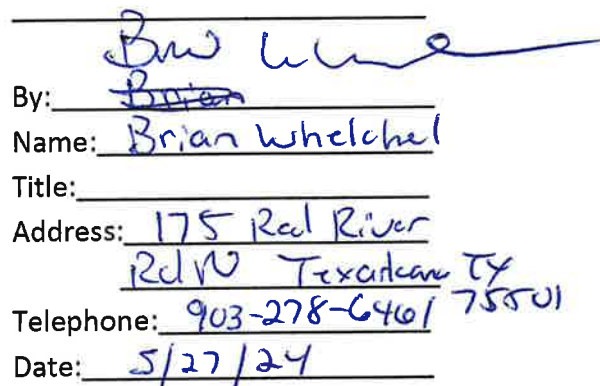 By: Brian
Name: Brian Whelchel
Title:
Address: 175 Red River
Rd N Texarkana TX
75501
Telephone: 903-278-6461
Date: 5/27/24